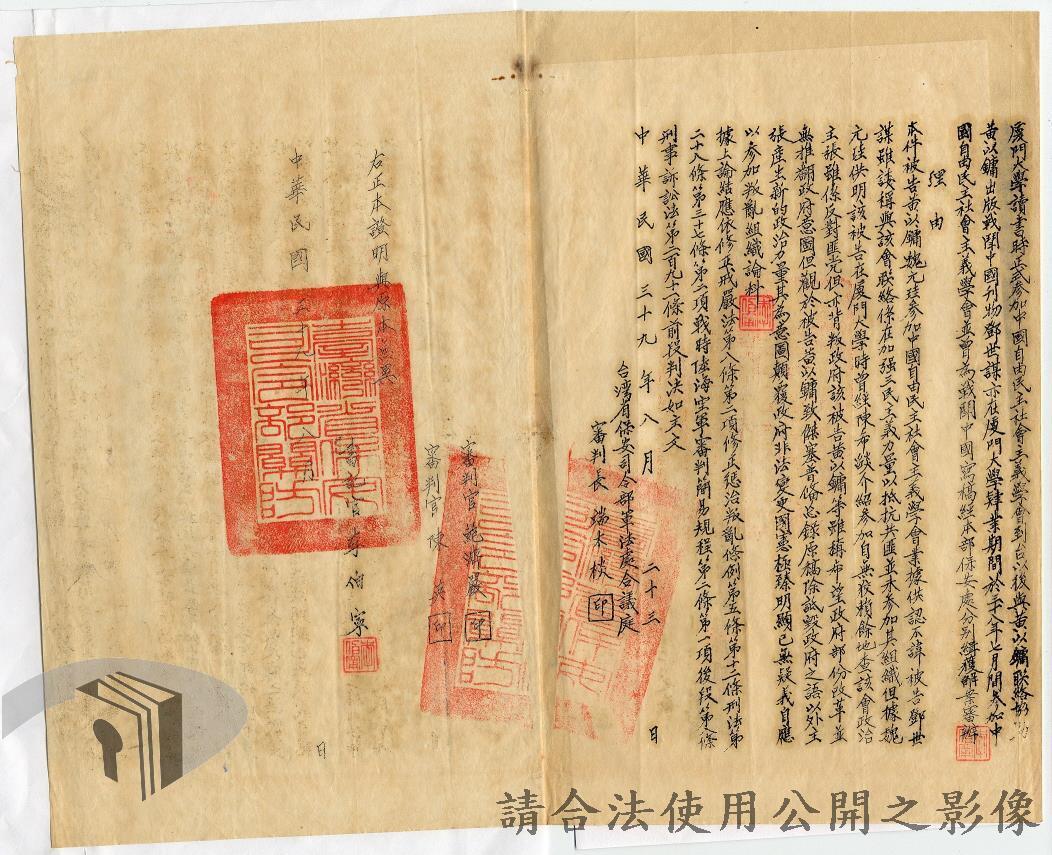 廈門大學讀書時正式參加中國自由民主社會主義學會到台以後與黃以鏞聯絡
黃以鏞出版戰鬪中國刊物鄧世謀亦在廈門大學肄業期間於三十八年七月間參加中
國自由民主社會主義學會並曾為戰鬪中國寫稿經本部保安處分別緝獲解案審辦
理由
本件被告黃以鏞魏元珪參加中國自由民主社會主義學會業據供認不諱被告鄧世
謀雖諉稱與該會聯絡係在加强三民主義力量以抵抗共匪並未參加其組織但據魏
元珪供明該被告在廈門大學時曾經陳布錟介紹參加自無狡賴餘地查該會政治
主張雖係反對匪党但亦背叛政府該被告黃以鏞等雖稱希望政府部份改革並
無推翻政府意圖但觀於被告黃以鏞致傑塞普倫忘錄原稿除詆毀政府之語以外主
張產生新的政治力量其為意圖顛覆政府非法變更國憲極臻明顯已無疑義自應
以參加叛亂組織論科
據上論結應依修正戒嚴法第八條第二項修正懲治叛亂條例第五條第十二條刑法第
二十八條第三十七條第二項戰時陸海空軍審判簡易規程第二條第一項後段第八條
刑事訴訟法第二百九十一條前段判決如主文
中華民國三十九年八月二十三日
台灣省保安司令部軍法處合議庭
審判長 端木棪 印
審判官 鮑濟嚴 印
審判官 陳英 印
右正本證明與原本無異
書記官 李伯寧
中華民國三十九年八月 日
台灣省保安司令部關防
請合法使用公開之影像